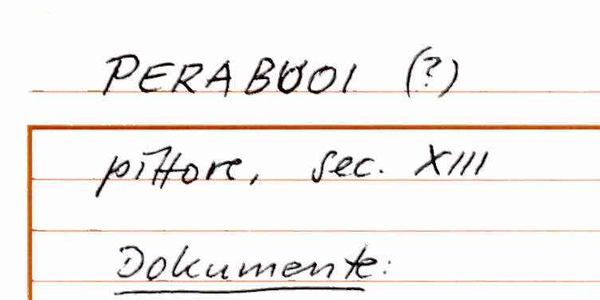 PERABUOI (?)
pittore, sec. XIII
Dokumente: